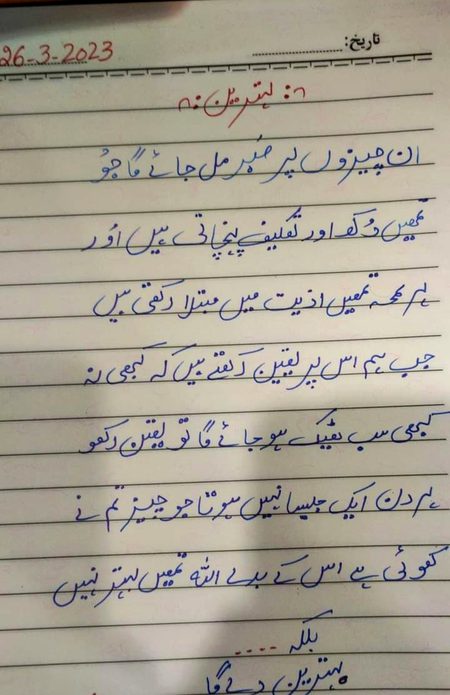 تاریخ: 26-3-2023
:بہترین:
ان چیزوں پر صبر مل جائے گا جو
تمھیں دُکھ اور تکلیف پہنچاتی ہیں اور
ہر لمحہ تمھیں اذیت میں مبتلا رکھتی ہیں
جب ہم اس پر یقین رکھتے ہیں کہ کبھی نہ
کبھی سب ٹھیک ہو جائے گا تو یقین رکھو
ہر دن ایک جیسا نہیں ہوتا جو چیز تم نے
کھوئی ہے اس کے بدلے اللہ تمھیں بہتر نہیں
بلکہ ....
بہترین دے گا